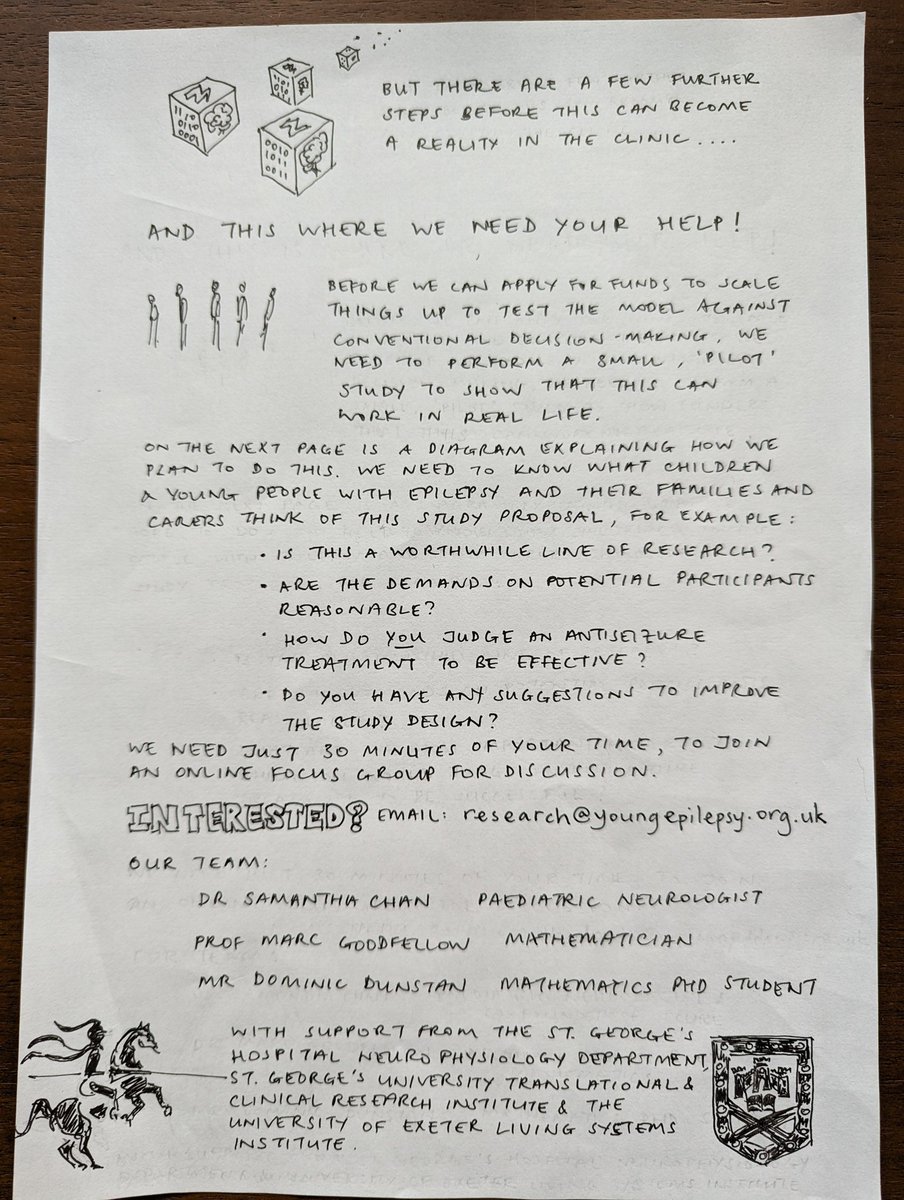 BUT THERE ARE A FEW FURTHER
STEPS BEFORE THIS CAN BECOME
A REALITY IN THE CLINIC....
AND THIS WHERE WE NEED YOUR HELP!
BEFORE WE CAN APPLY FOR FUNDS TO SCALE
THINGS UP TO TEST THE MODEL AGAINST
CONVENTIONAL DECISION-MAKING, WE
NEED TO PERFORM A SMALL, 'PILOT'
STUDY TO SHOW THAT THIS CAN
WORK IN REAL LIFE.
ON THE NEXT PAGE IS A DIAGRAM EXPLAINING HOW WE
PLAN TO DO THIS. WE NEED TO KNOW WHAT CHILDREN
& YOUNG PEOPLE WITH EPILEPSY AND THEIR FAMILIES AND
CARERS THINK OF THIS STUDY PROPOSAL, FOR EXAMPLE:
• IS THIS A WORTHWHILE LINE OF RESEARCH?
• ARE THE DEMANDS ON POTENTIAL PARTICIPANTS
REASONABLE?
• HOW DO YOU JUDGE AN ANTISEIZURE
TREATMENT TO BE EFFECTIVE?
• DO YOU HAVE ANY SUGGESTIONS TO IMPROVE
THE STUDY DESIGN?
WE NEED JUST 30 MINUTES OF YOUR TIME, TO JOIN
AN ONLINE FOCUS GROUP FOR DISCUSSION.
INTERESTED? EMAIL: research@youngepilepsy.org.uk
OUR TEAM:
DR SAMANTHA CHAN PAEDIATRIC NEUROLOGIST
PROF MARC GOODFELLOW MATHEMATICIAN
MR DOMINIC DUNSTAN MATHEMATICS PHD STUDENT
WITH SUPPORT FROM THE ST. GEORGE'S
HOSPITAL NEUROPHYSIOLOGY DEPARTMENT,
ST. GEORGE'S UNIVERSITY TRANSLATIONAL &
CLINICAL RESEARCH INSTITUTE & THE
UNIVERSITY OF EXETER LIVING SYSTEMS
INSTITUTE.